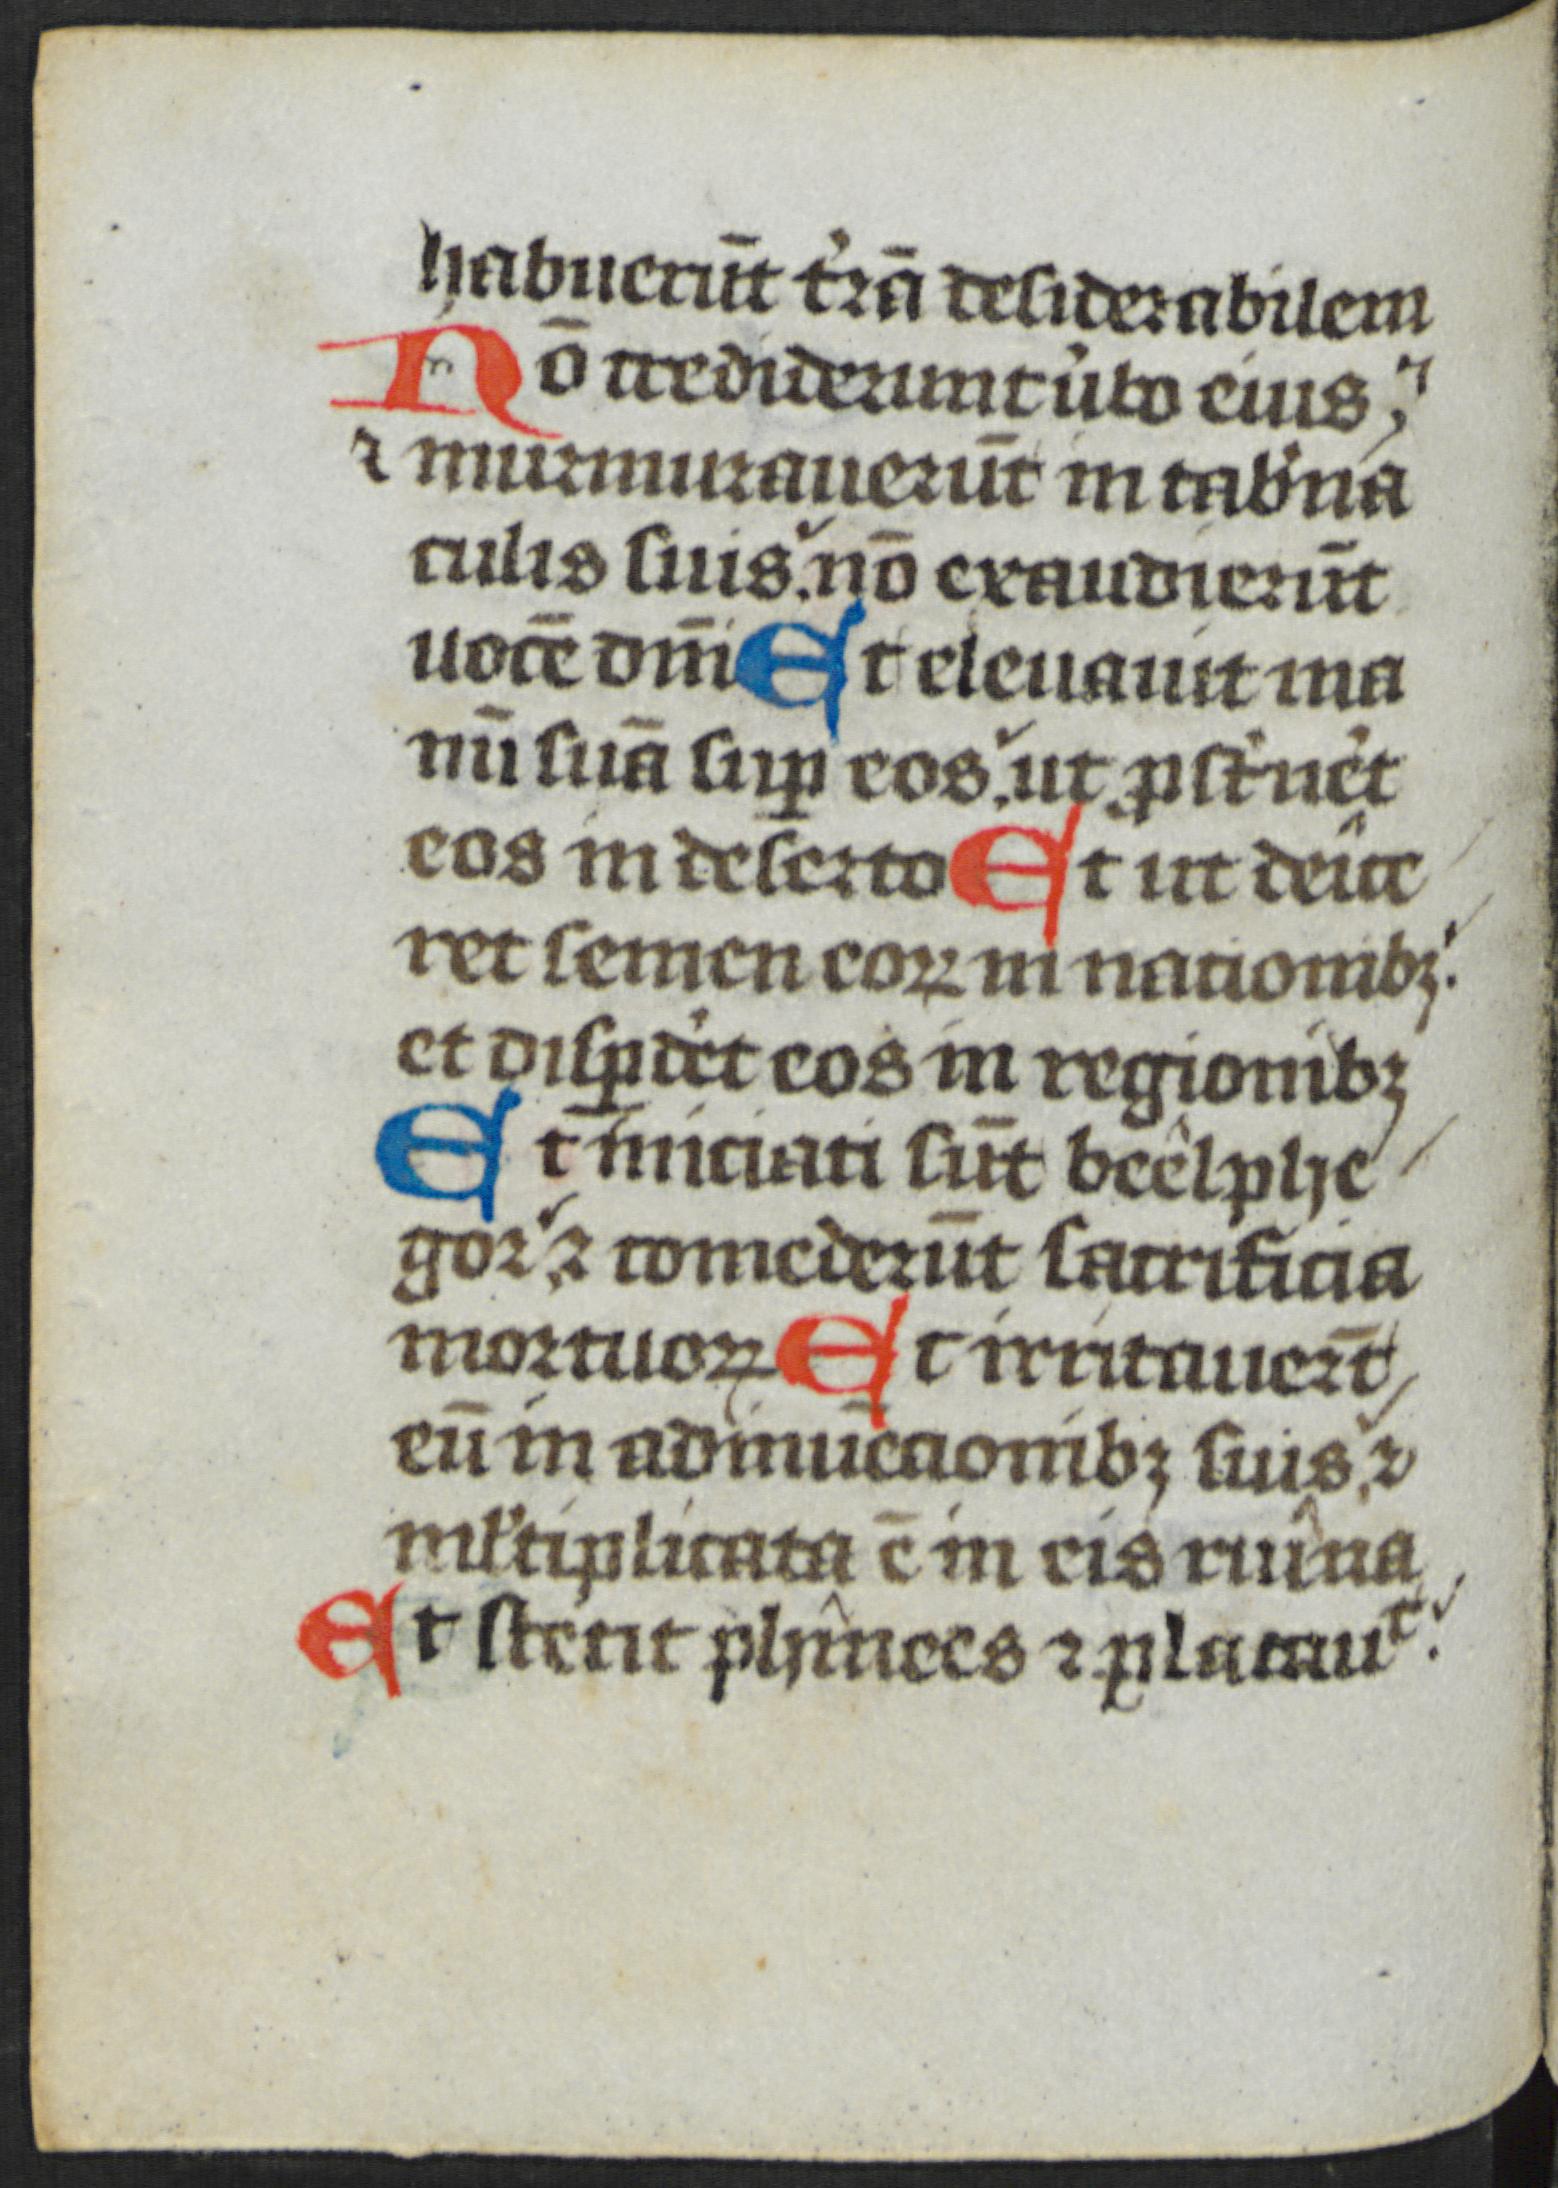 habuerūt t̾rā desiderabilem
Nō crediderunt ůbo eius .⁊
⁊ murmurauerūt in tab̾na
culis suis. nō exaudierūt
uocē dn̄i Et eleuauit ma
nū suā suꝑ eos. ut ꝓst̾n̾et
eos in deserto Et ut deice
ret semen eoꝝ in nationibꝫ.
et disꝑd̾et eos in regionibꝫ
Et īniciati sūt beelphe
gor. ⁊ comederūt sacrificia
mortuoꝝ Et irritauer̄t
eū in adinuēcionibꝫ suis. ⁊
ml̾tiplicata ē in eis ruina
Et stetit phinees ⁊ placauᵗ.